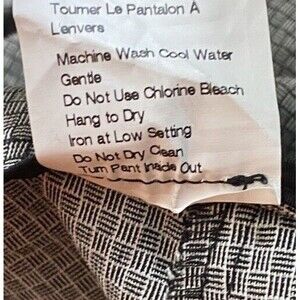 Tourner Le Pantalon À
L'envers
Machine Wash Cool Water
Gentle
Do Not Use Chlorine Bleach
Hang to Dry
Iron at Low Setting
Do Not Dry Clean
Turn Pant Inside Out